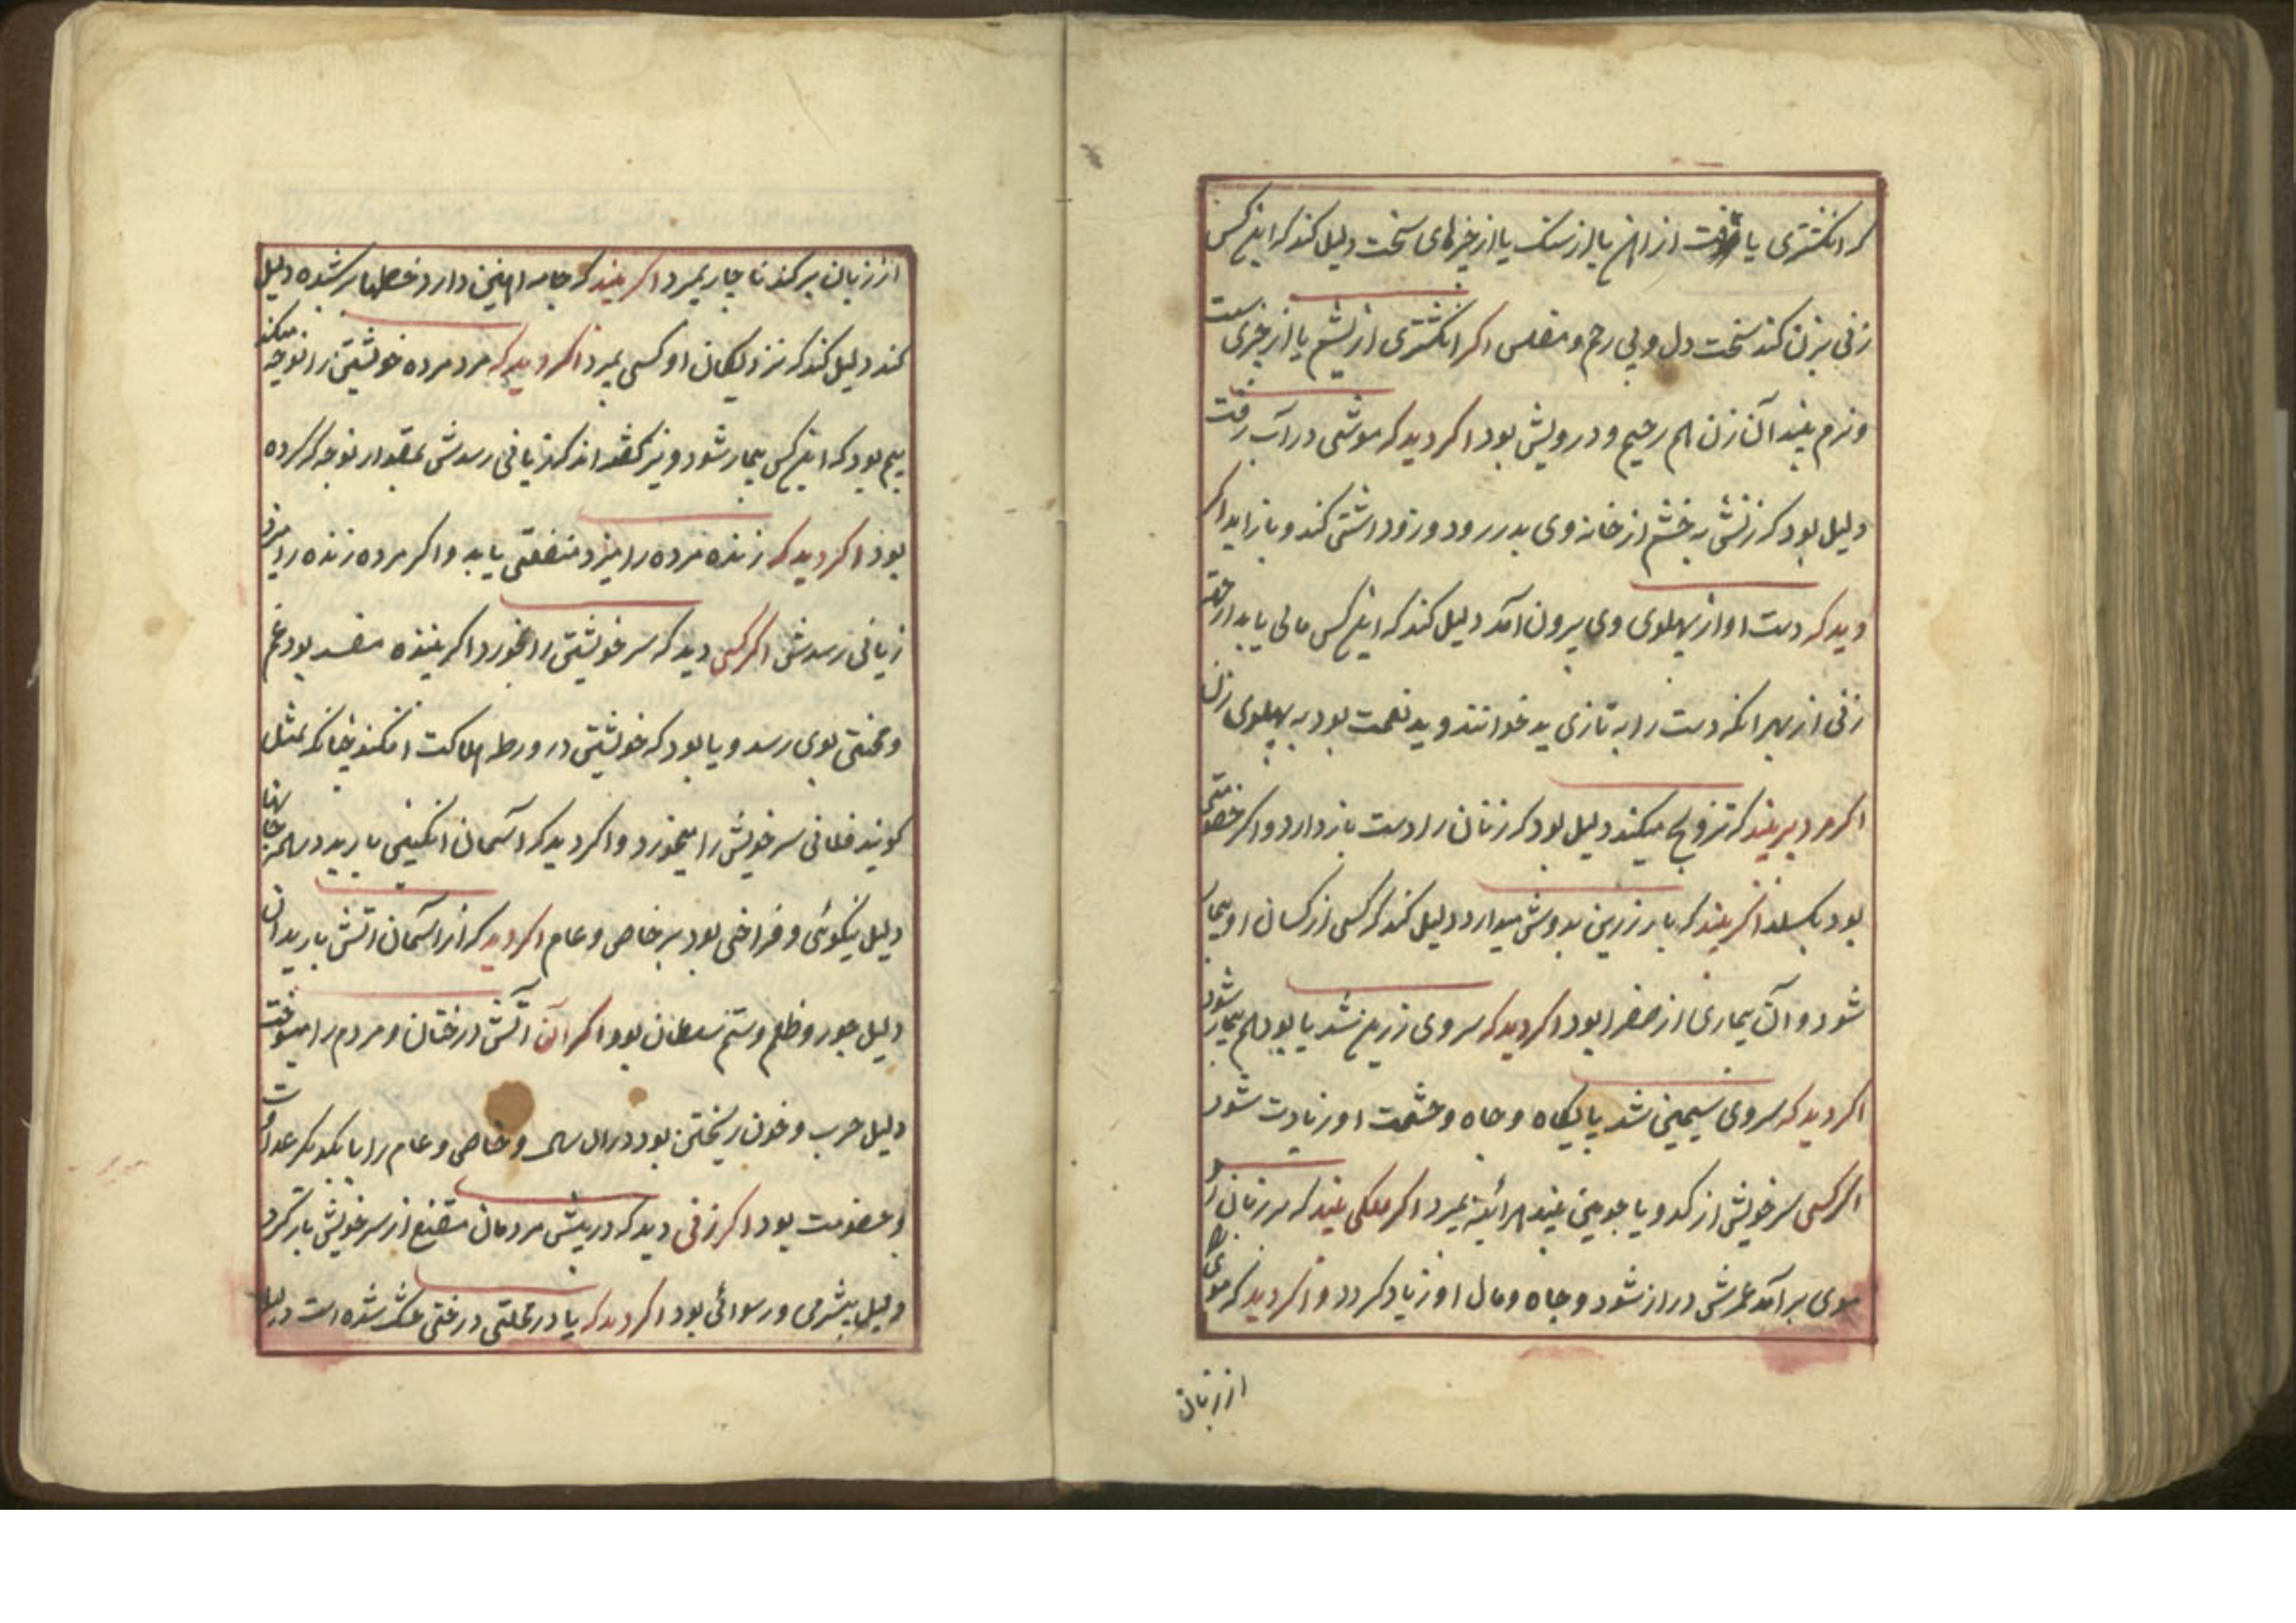 که انکشتری یافت از اهن یا از سنک یا از چیزهای سخت دلیل کند که اینکس
زنی بزن کند سخت دل و بی رحم و مفلس اکر انکشتری از پشم یا از چیزی سست
و نرم بیند آن زن هم رحیم و درویش بود اکر دید که موشی در آب رفت
دلیل بود که زنش به خشم از خانه وی بدر رود و زود اشتی کند و باز اید اکر
دید که دست او از پهلوی وی بیرون آمد دلیل کند که اینکس مالی یابد از حق
زنی از بهر انکه دست را به تازی ید خوانند و ید نعمت بود به پهلوی زن
اکر مرد پیر بیند که تزویج میکند دلیل بود که زنان را دست باز دارد و اکر خصومتی
بود بکسلد اکر بیند که بار زرین بدوش میدارد دلیل کند که کسی از کسان او بیمار
شود و آن بیماری از صفرا بود اکر دید که سروی زرین شد یا بود هم بیمار شود
اکر دید که سروی سیمین شد پایکاه و جاه و حشمت او زیادت شود
اکر کسی سر خویش از کدو یا چوبین بیند هرآئینه بمیرد اکر ملکی بیند که بر زبان او
موی برآمد عمرش دراز شود و جاه و مال او زیاد کردد و اکر دید که موی
از زبان
از زبان بر کند ناچار بمیرد اکر بیند که جامه اهنین دارد دلیل
کند دلیل کند که نزدیکان او کسی بمیرد اکر دید که مرد مرده خویشتن را نوحه میکند
بیم بود که اینکس بیمار شود و نیز کفته اند که زیانی رسدش بمقدار نوحه که کرده
بود اکر دید که زنده مرده را میزد منفعتی یابد و اکر مرده زنده را میزد
زیانی رسدش اکر کسی دید که سر خویشتن را بخورد اکر بیننده مفسد بود غم
و محنتی بوی رسد و یا بود که خویشتن در ورطه هلاکت افکند چنانکه بمثل
کویند فلانی سر خویش را میخورد و اکر دید که آسمان انکبین بارید در همه جا
دلیل نیکوئی و فراخی بود بر خاص و عام اکر دید که از آسمان اتش بارید ان
دلیل جور و ظلم و ستم سلطان بود اکر آن آتش درختان و مردم را میسوخت
دلیل حرب و خون ریختن بود در ان سال و خاص و عام را با یکدیکر عداوت
و خصومت بود اکر زنی دید که در پیش مردمان مقنع از سر خویش باز کرد
دلیل بیشرمی و رسوائی بود اکر دید که یا در محلتی درختی خشک شده است دلیل